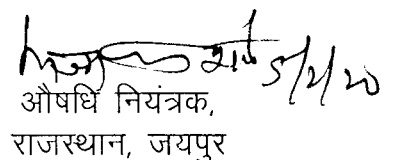 5/2/20
औषधि नियंत्रक,
राजस्थान, जयपुर